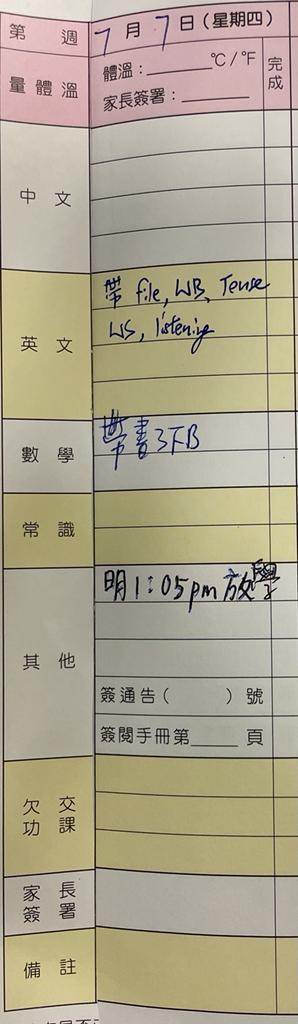 第 週 7月7日(星期四)
量體溫 體溫:______°C/°F 完成
家長簽署:______
中文
英文 帶 file, WB, Tense
WS, listening
數學 帶書3下B
常識
其他 明1:05pm放學
簽通告( )號
簽閱手冊第____頁
欠交功課
家長簽署
備註